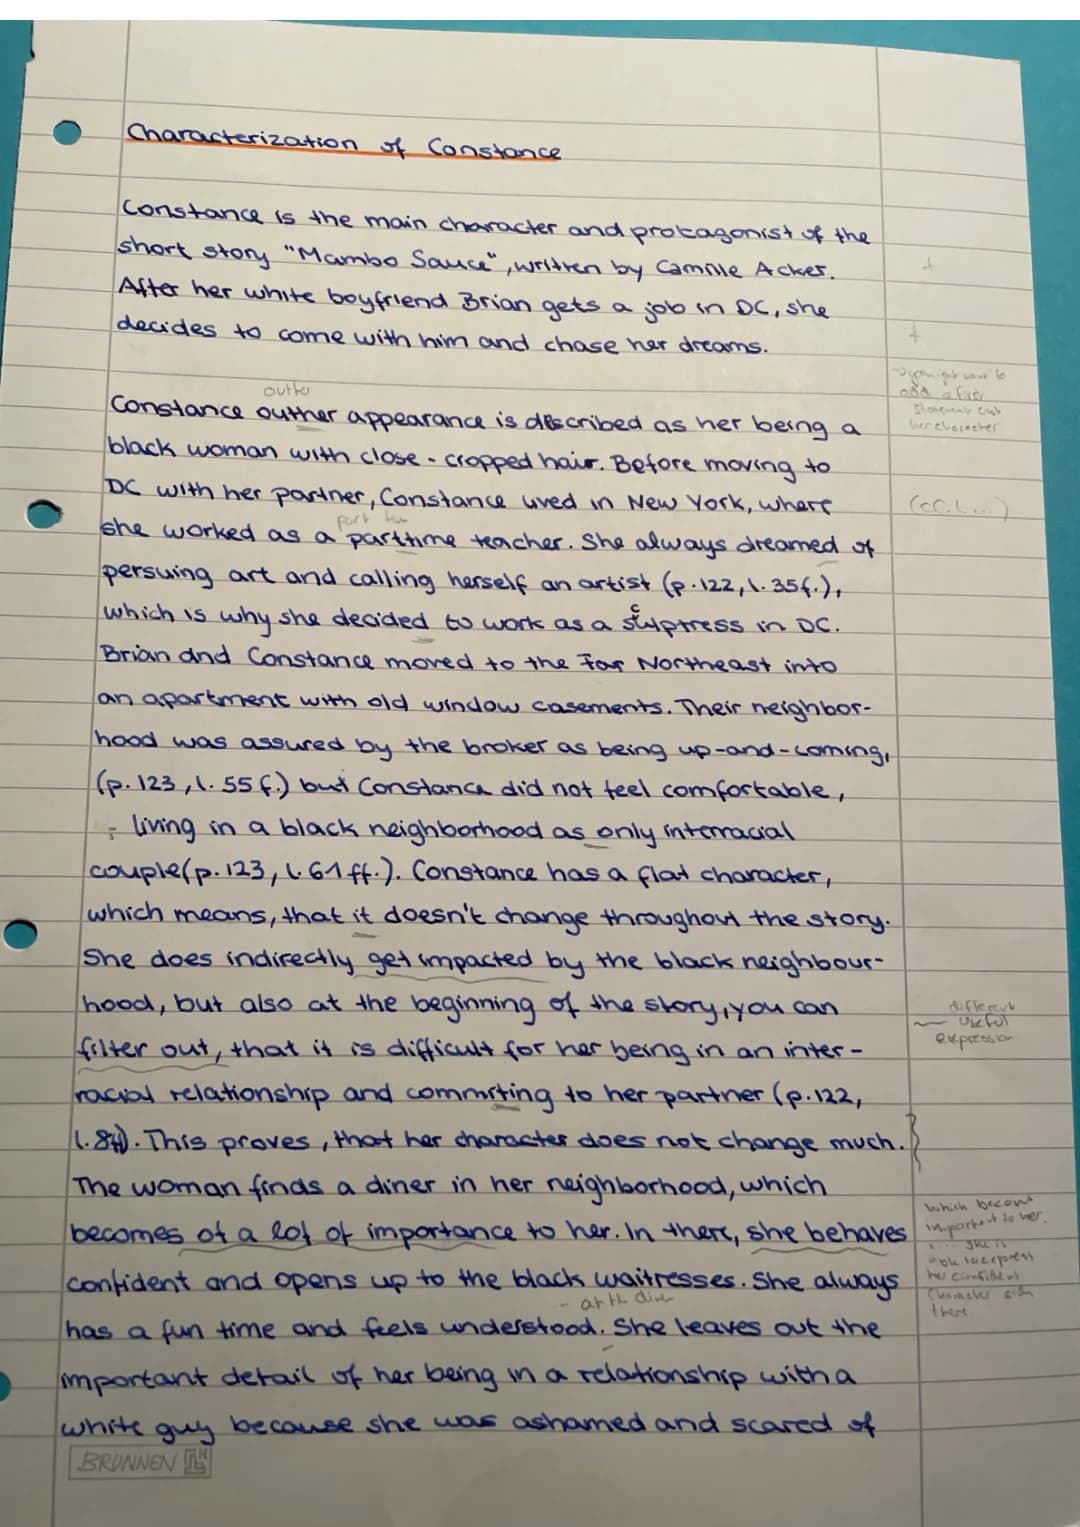 Characterization of Constance
Constance is the main character and protagonist of the
short story "Mambo Sauce", written by Camille Acker.
After her white boyfriend Brian gets a job in DC, she
decides to come with him and chase her dreams.
You might want to
add a first
statement
her character
outter
Constance outher appearance is described as her being a
black woman with close-cropped hair. Before moving to
DC with her partner, Constance lived in New York, where
(cf. l. ...)
part
she worked as a parttime teacher. She always dreamed of
persuing art and calling herself an artist (p.122, l.35f.),
which is why she decided to work as a sculptress in DC.
Brian and Constance moved to the Far Northeast into
an apartment with old window casements. Their neighbor-
hood was assured by the broker as being up-and-coming,
(p.123, l. 55 f.) but Constance did not feel comfortable,
living in a black neighborhood as only interracial
couple (p.123, l.61 ff.). Constance has a flat character,
which means, that it doesn't change throughout the story.
She does indirectly get impacted by the black neighbour-
hood, but also at the beginning of the story, you can
different
useful
expression
filter out, that it is difficult for her being in an inter-
racial relationship and commiting to her partner (p.122,
l.84). This proves, that her character does not change much.
The woman finds a diner in her neighborhood, which
becomes of a lot of importance to her. In there, she behaves
which becomes
important to her.
... she is
able to express
her confident
character side
there.
confident and opens up to the black waitresses. She always
- at the diner
has a fun time and feels understood. She leaves out the
important detail of her being in a relationship with a
white guy because she was ashamed and scared of
BRUNNEN